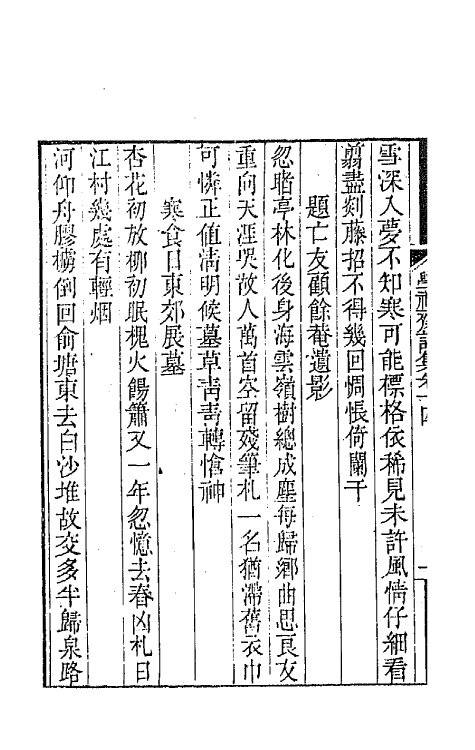 學福齋詩集卷十四
雪深入夢不知寒可能標格依稀見未許風情仔細看
翦盡剡藤招不得幾回惆悵倚闌干
題亡友顧餘菴遺影
忽睹亭林化後身海雲嶺樹總成塵每歸鄉曲思良友
重向天涯哭故人萬首空留殘筆札一名猶滯舊衣巾
可憐正値淸明候墓草靑靑轉愴神
寒食日東郊展墓
杏花初放柳初眠槐火餳簫又一年忽憶去春凶札日
江村幾處有輕烟
河仰舟膠櫂倒回俞塘東去白沙堆故交多半歸泉路